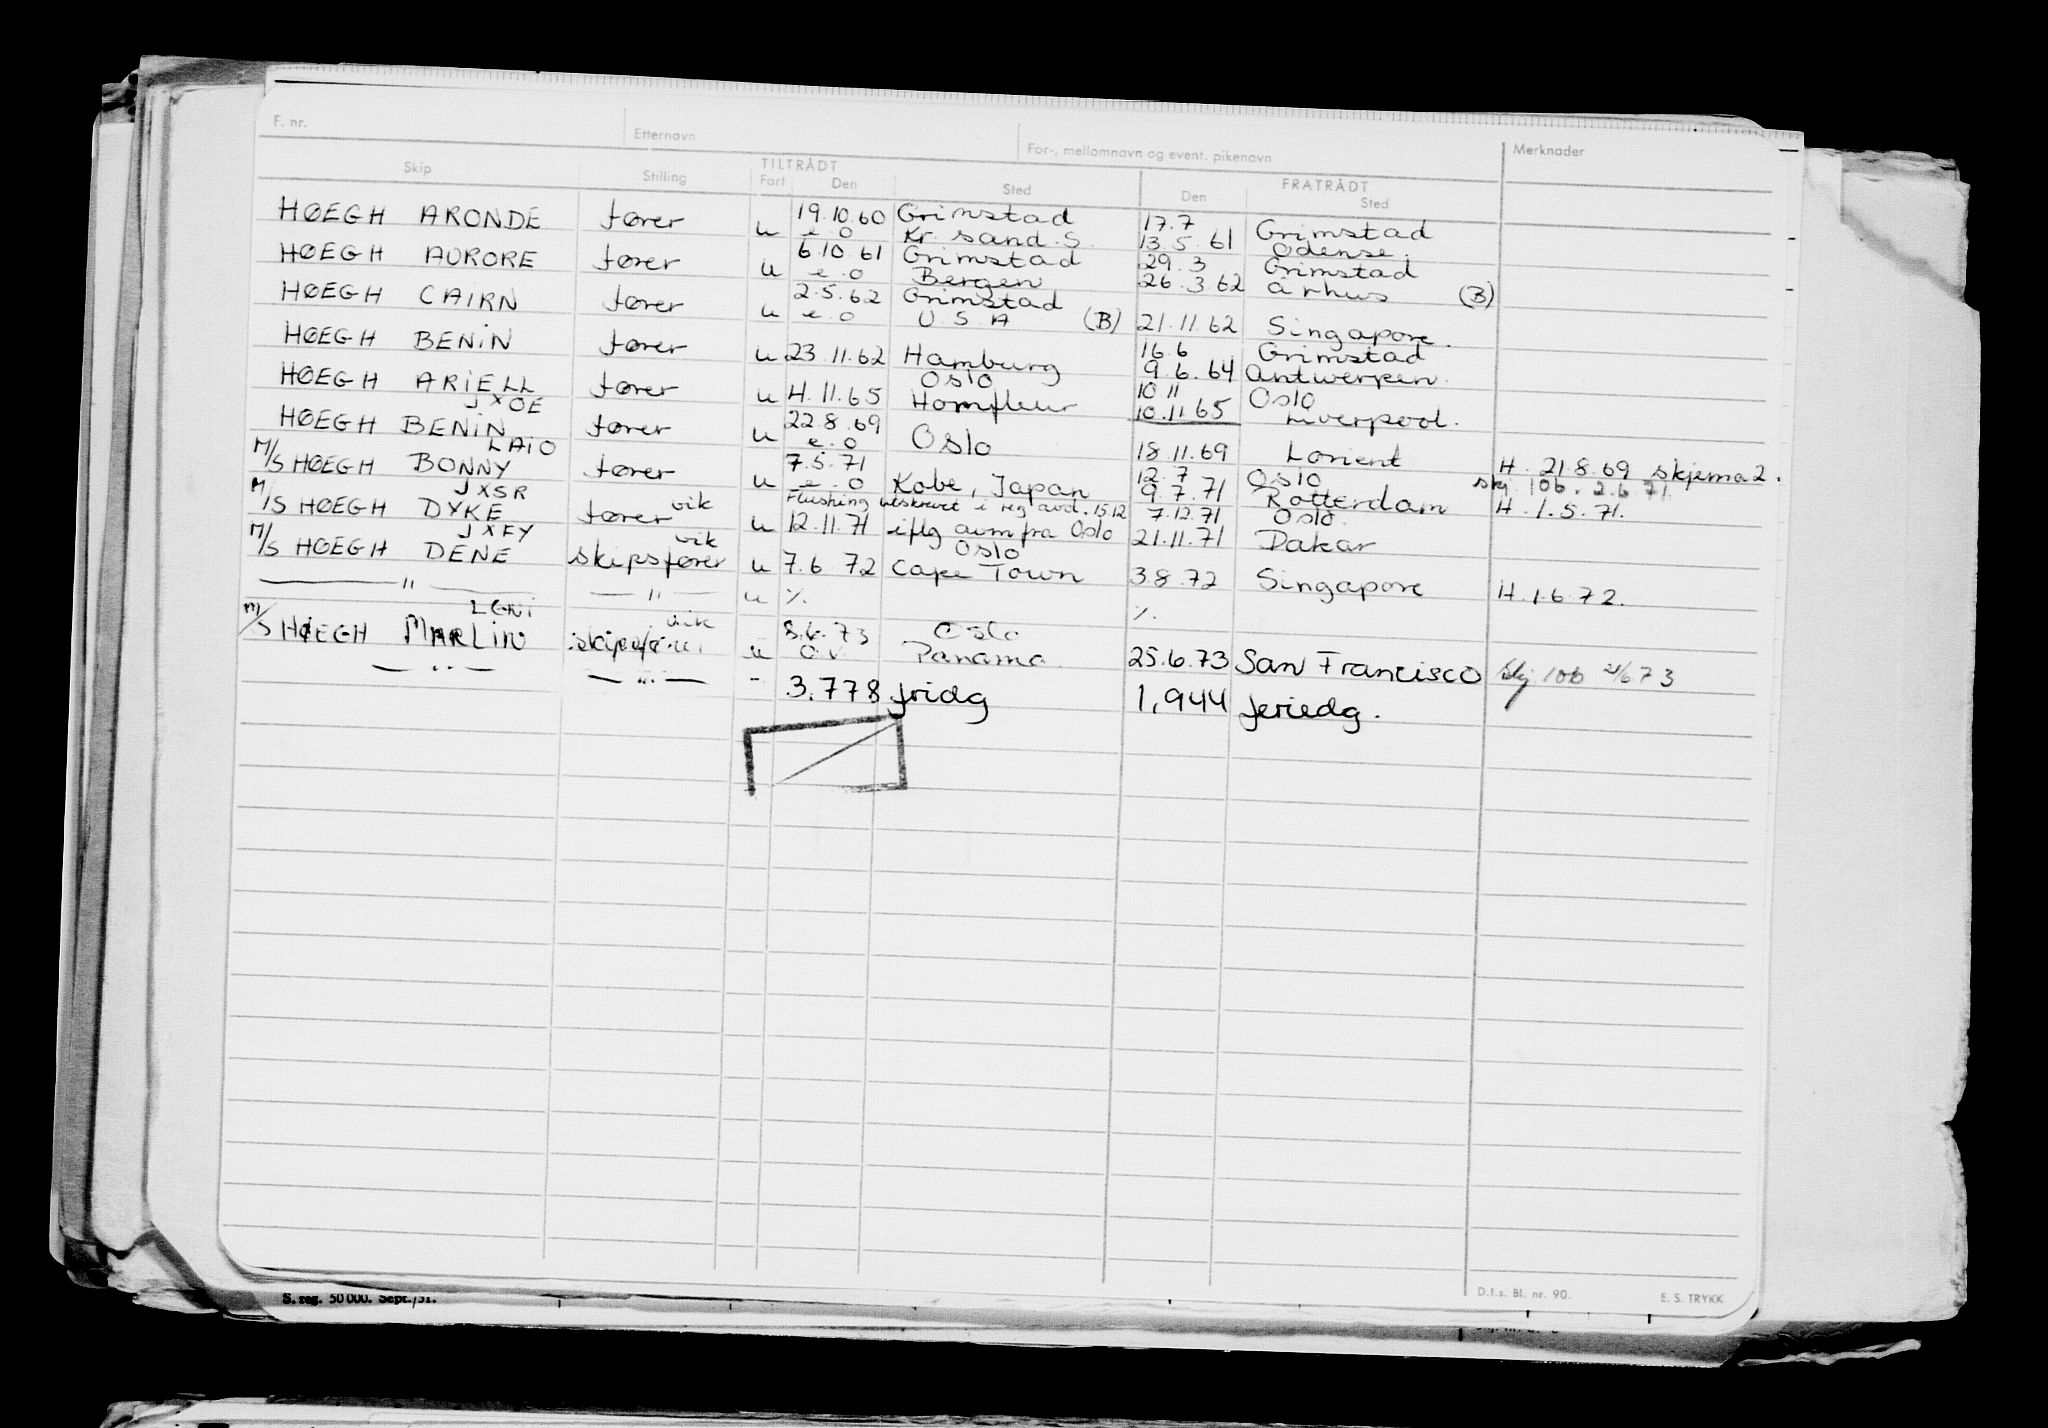 F. nr. Etternavn For-, mellomnavn og event. pikenavn Merknader
Skip Stilling TILTRÅDT Fart Den Sted FRATRÅDT Den Sted
19.10.60 Grimstad 17.7 Grimstad
HØEGH ARONDE fører u e.o Kr. sand. S. 13.5.61 Odense.
6.10.61 Grimstad 29.3 Grimstad
HØEGH AURORE fører u e.o Bergen 26.3.62 århus (B)
2.5.62 Grimstad
HØEGH CAIRN fører u e.o U.S.A (B) 21.11.62 Singapore.
16.6 Grimstad
HØEGH BENIN fører u 23.11.62 Hamburg 9.6.64 Antwerpen.
Oslo 10 11 Oslo
HØEGH ARIELL fører u 4.11.65 Honfleur 10.11.65 Liverpool.
JXOE 22.8.69
HØEGH BENIN fører u e.o Oslo 18.11.69 Lorient H. 21.8.69 skjema 2.
LAIO 7.5.71 12.7 Oslo skj. 10b. 2.6.71
M/S HØEGH BONNY fører u e.o Kobe, Japan 9.7.71 Rotterdam H. 1.5.71.
JXSR vik Flushing utskrevet i reg avd. 15.12 7.12.71 Oslo.
M/S HØEGH DYKE fører u 12.11.71 iflg avm fra Oslo 21.11.71 Dakar
JXFY vik Oslo
M/S HØEGH DENE skipsfører u 7.6.72 Cape Town 3.8.72 Singapore H. 1.6.72.
— " — — " — u %. %.
LGNI vik 8.6.73 Oslo
M/S HØEGH MARLIN u Panama. 25.6.73 San Francisco skj 10b 21/6 73
— " — — " — - 3.778 fridg 1,944 feriedg.
S. reg. 50 000. Sept./51.
D.f.s. Bl. nr. 90. E. S. TRYKK